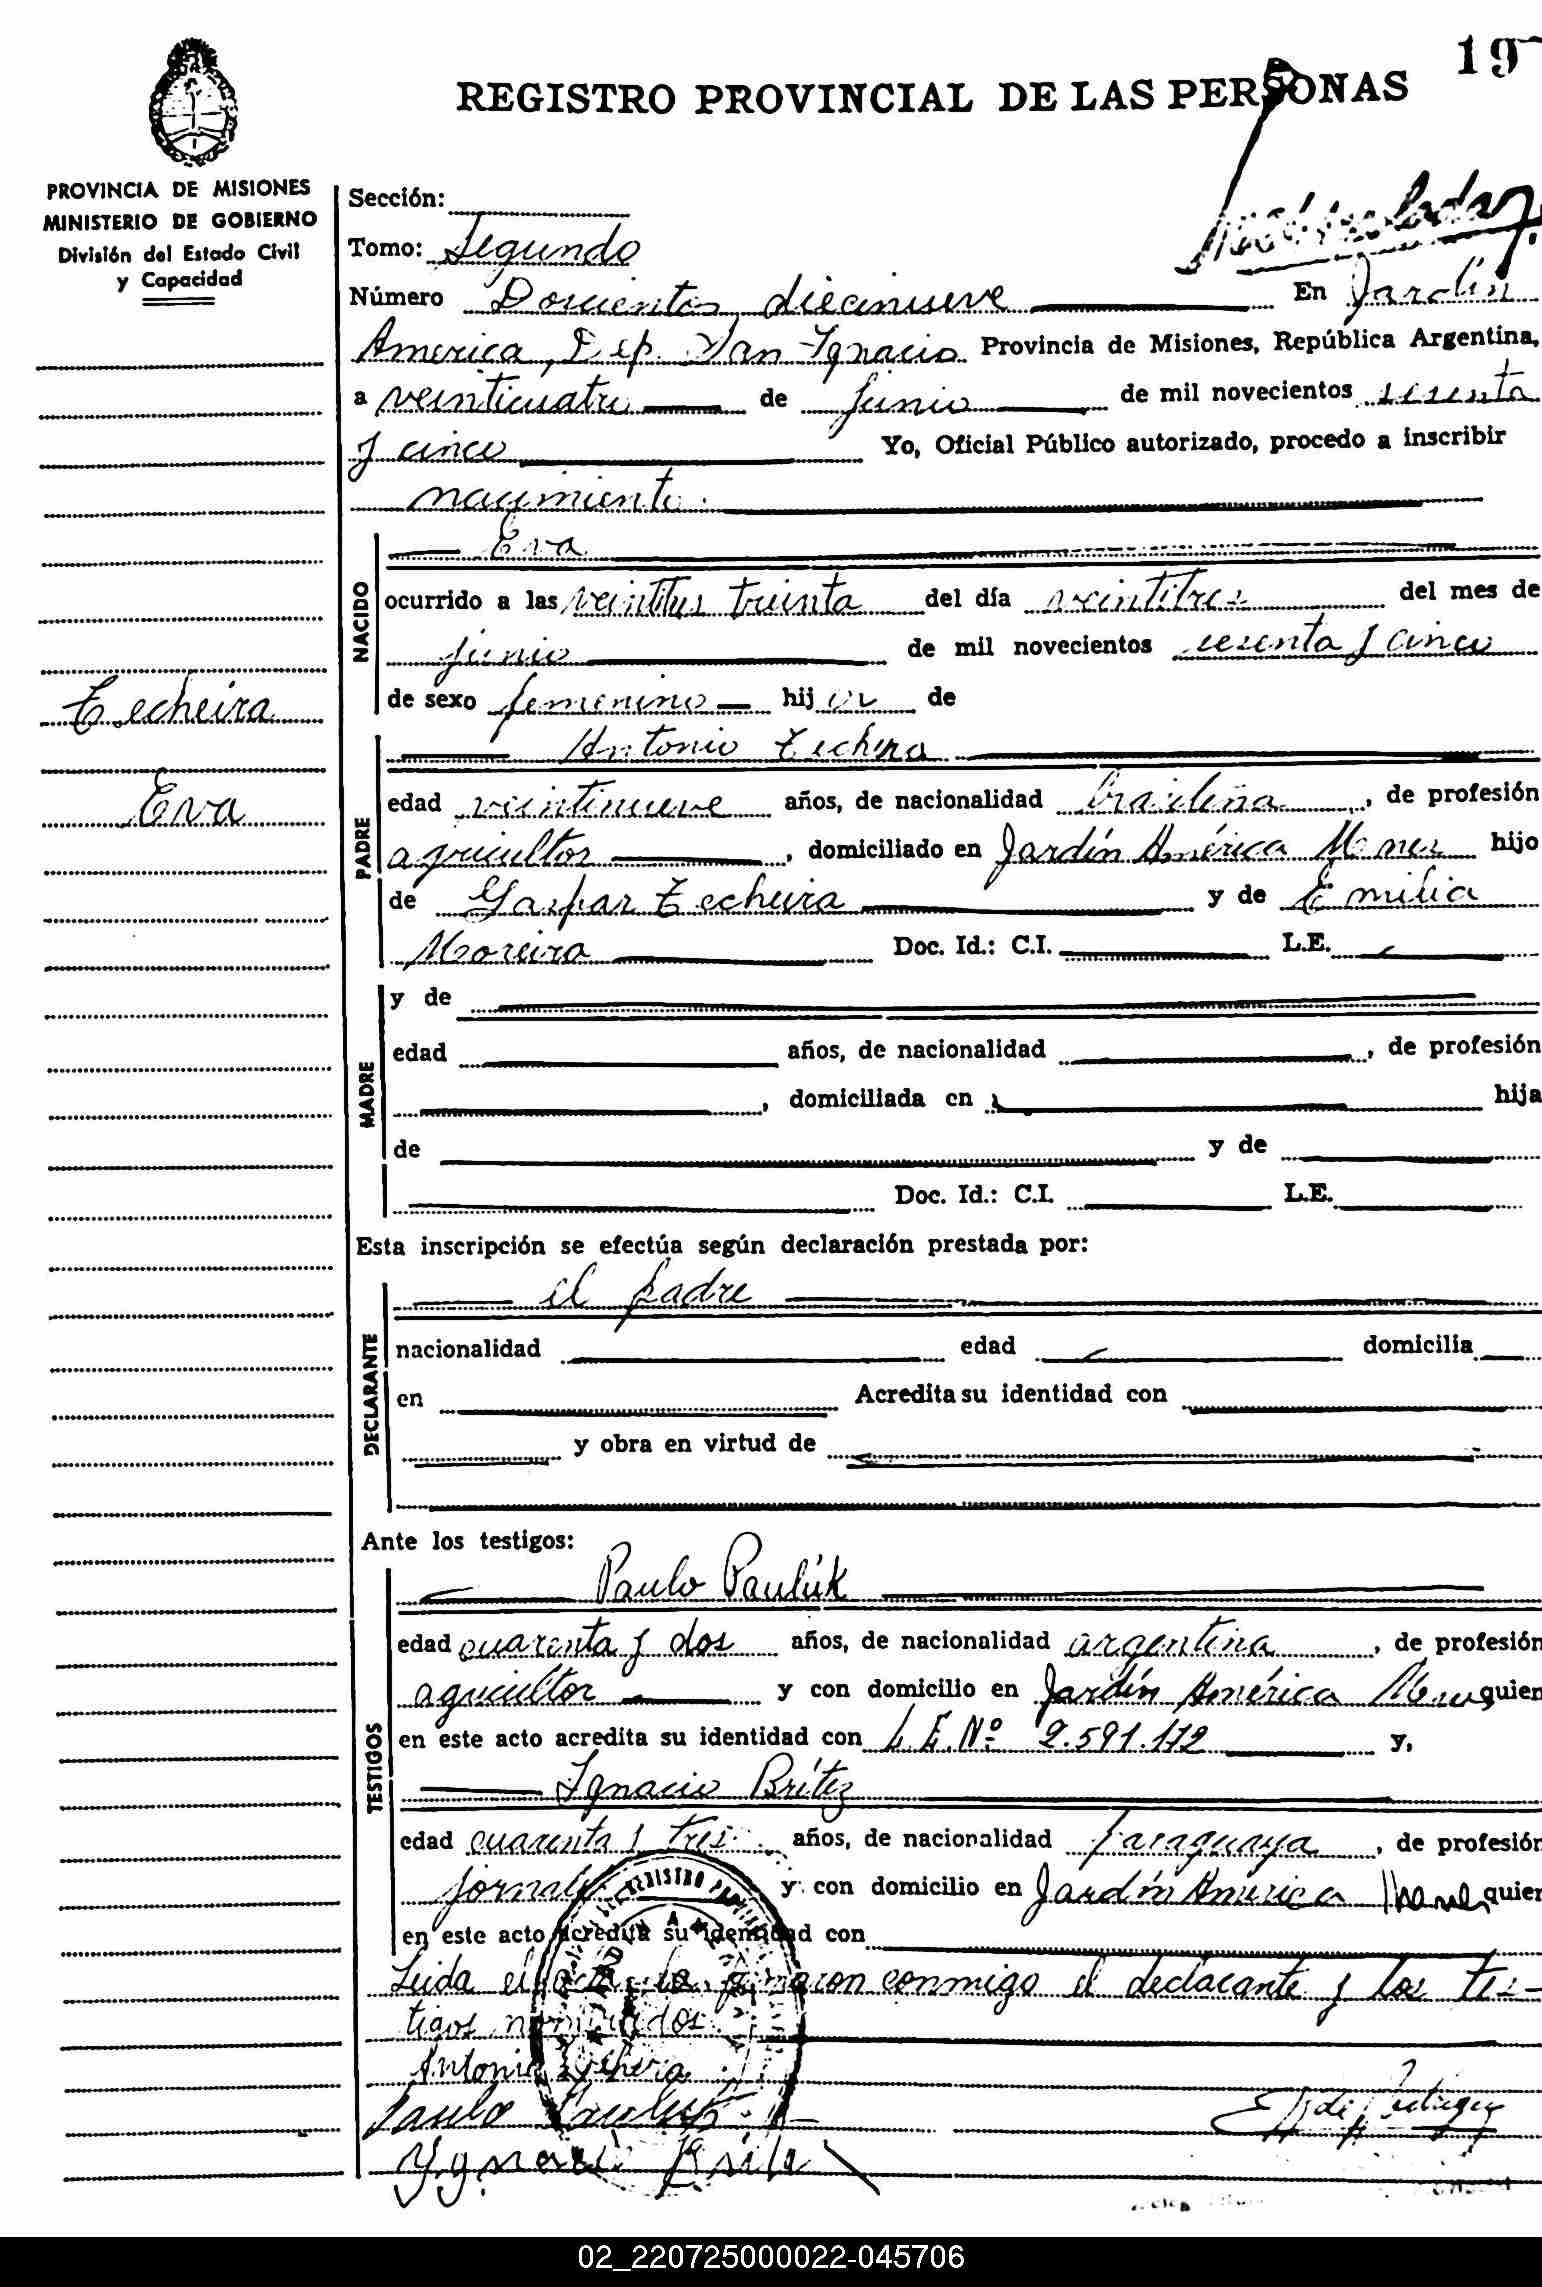 19
REGISTRO PROVINCIAL DE LAS PERSONAS
PROVINCIA DE MISIONES
MINISTERIO DE GOBIERNO
División del Estado Civil
y Capacidad
Sección:
Tomo: Segundo
Número Doscientos diecinueve En Jardín
America, Dep. San Ignacio Provincia de Misiones, República Argentina,
a veinticuatro de junio de mil novecientos sesenta
y cinco Yo, Oficial Público autorizado, procedo a inscribir
nacimiento.
NACIDO
Eva
ocurrido a las veintitres treinta del día veintitres del mes de
junio de mil novecientos sesenta y cinco
de sexo femenino hija de
Techeira
Eva
PADRE
Antonio Techera
edad veintinueve años, de nacionalidad brasileña, de profesión
agricultor, domiciliado en Jardín América Mnes hijo
de Gaspar Techeira y de Emilia
Moreira Doc. Id.: C.I. L.E.
MADRE
y de
edad años, de nacionalidad , de profesión
, domiciliada en hija
de y de
Doc. Id.: C.I. L.E.
Esta inscripción se efectúa según declaración prestada por:
DECLARANTE
el padre
nacionalidad edad domicilia
en Acredita su identidad con
y obra en virtud de
Ante los testigos:
TESTIGOS
Paulo Paulúk
edad cuarenta y dos años, de nacionalidad argentina, de profesión
agricultor y con domicilio en Jardín América Mnes quien
en este acto acredita su identidad con L.E.Nº 2.591.172 y,
Ignacio Brítez
edad cuarenta y tres años, de nacionalidad paraguaya, de profesión
y con domicilio en Jardín América quien
en este acto acredita su identidad con
Leida el acta la firmaron conmigo el declarante y los tes-
tigos nombrados
Antonio Techera
Paulo Pauluk
02_220725000022-045706